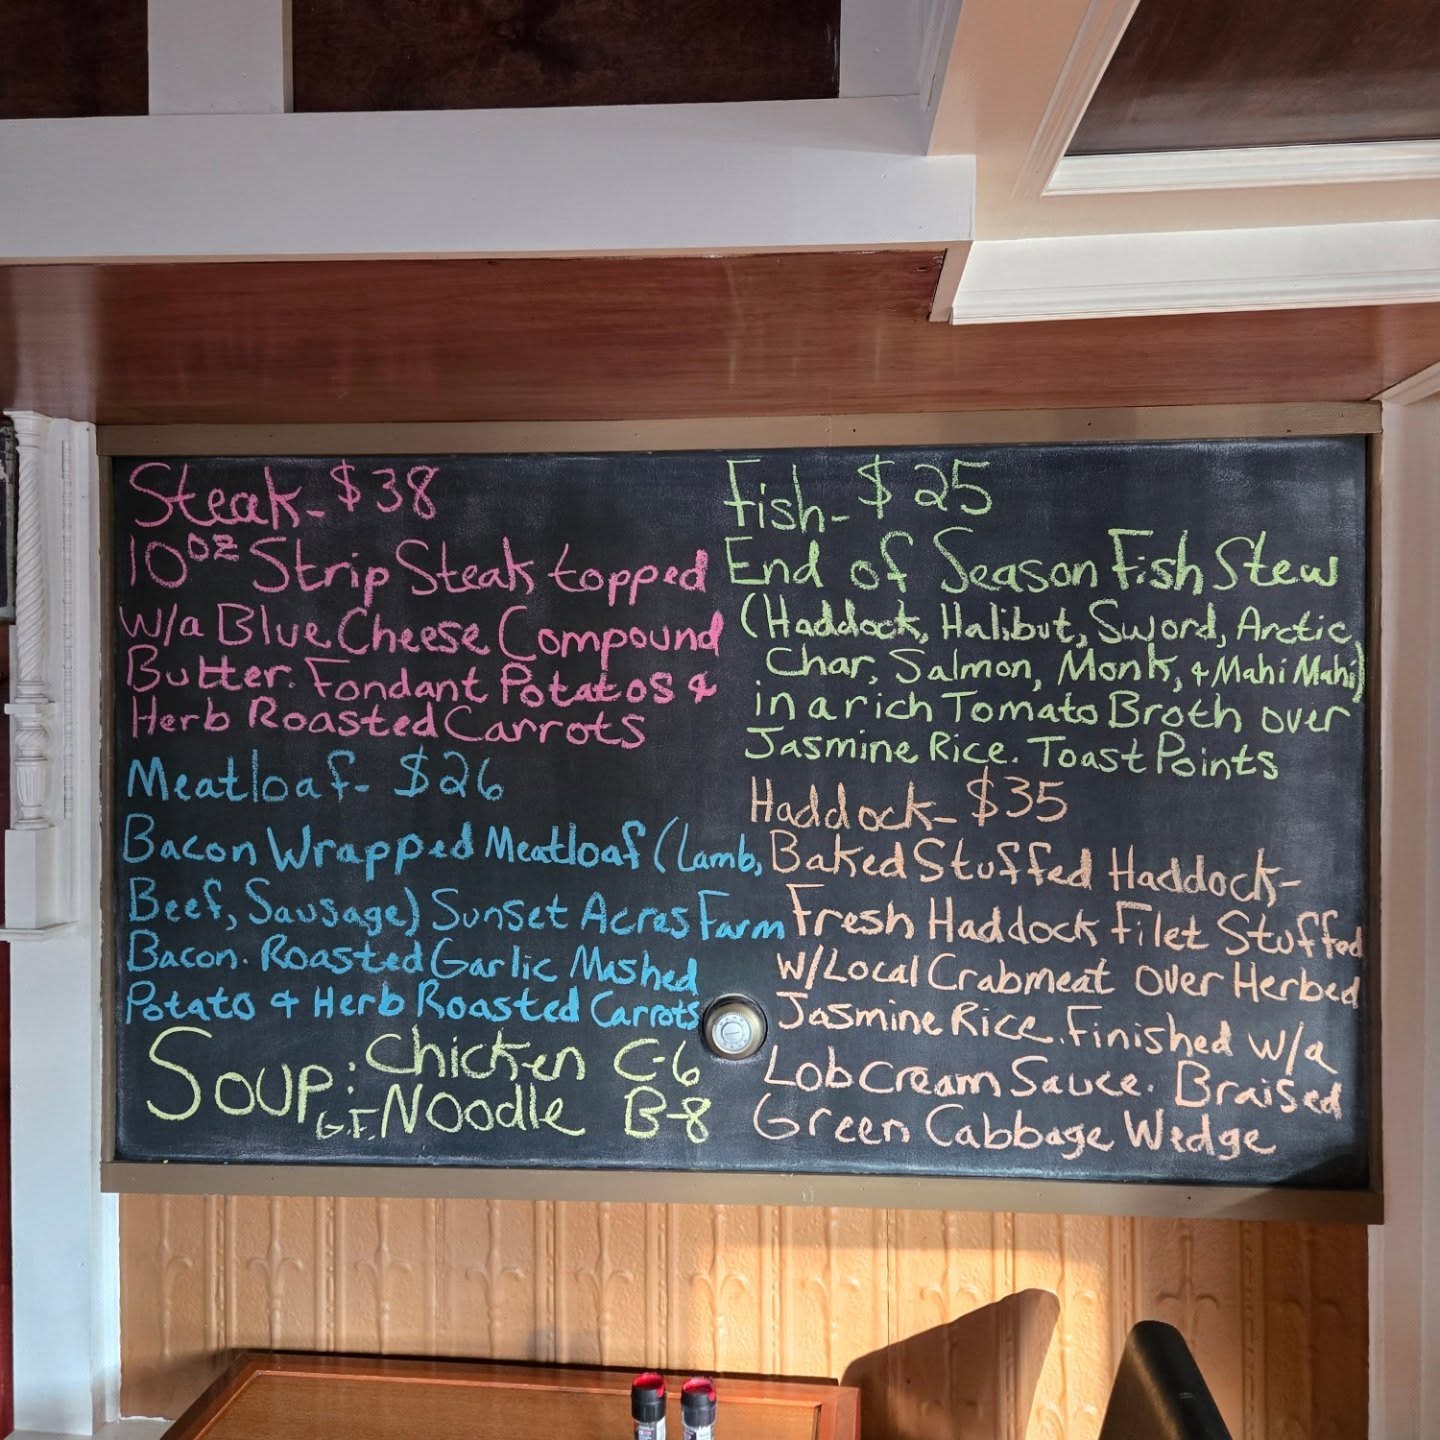 Steak- $38
10oz Strip Steak topped
w/a Blue Cheese Compound
Butter. Fondant Potatos &
Herb Roasted Carrots
Meatloaf- $26
Bacon Wrapped Meatloaf (Lamb,
Beef, Sausage) Sunset Acres Farm
Bacon. Roasted Garlic Mashed
Potato & Herb Roasted Carrots
Soup: Chicken C-6
G.F. Noodle B-8
Fish- $25
End of Season Fish Stew
(Haddock, Halibut, Sword, Arctic
Char, Salmon, Monk, & Mahi Mahi)
in a rich Tomato Broth over
Jasmine Rice. Toast Points
Haddock- $35
Baked Stuffed Haddock-
Fresh Haddock Filet Stuffed
w/Local Crabmeat over Herbed
Jasmine Rice. Finished w/a
Lob Cream Sauce. Braised
Green Cabbage Wedge